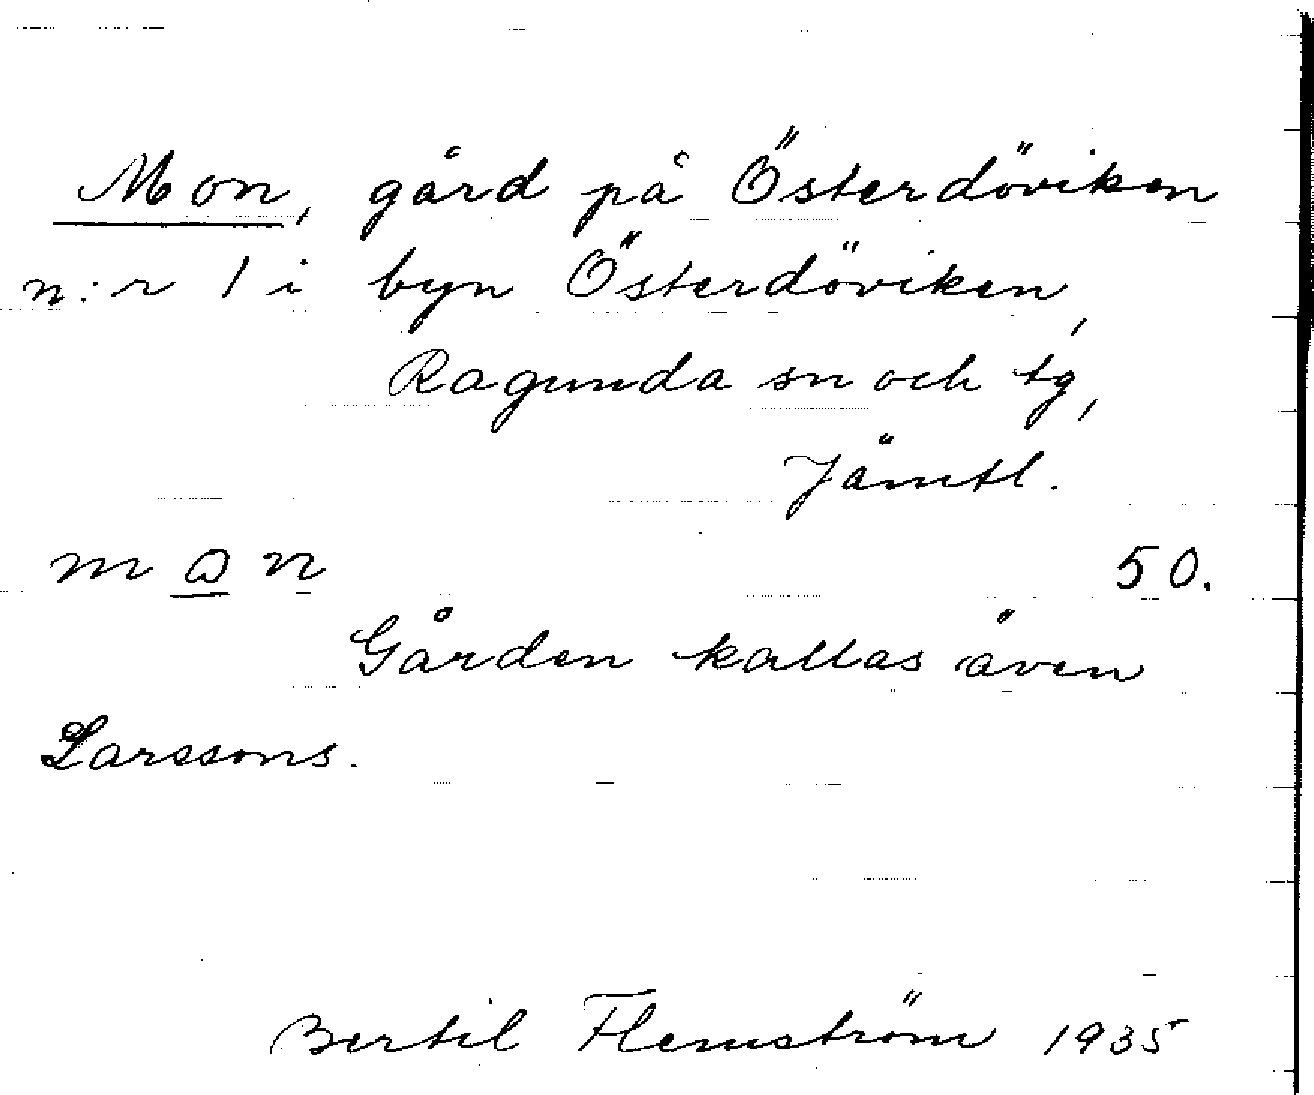 Mon, gård på Österdöviken
n:r 1 i byn Österdöviken,
Ragunda sn och tg,
Jämtl.
m ɷ n 50.
Gården kallas även
Larssons.
Bertil Flemström 1935